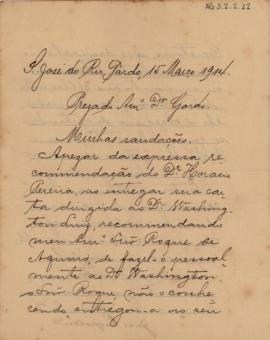 AG 3.2.2.22
S. José do Rio Pardo, 15 Março 1914.
Prezado Amº Dr Gordo.
Minhas saudações.
Apezar da expressa re
commendação do Dr Horacio
Pereira, ao entregar sua car
ta dirigida ao Dr Washing
ton Luis, recommendando
meu Amº Snr Roque de
Aquino, de fazel-o pessoal
mente ao Dr Washington
o Snr Roque, não o conhe
cendo entregou-a ao seu